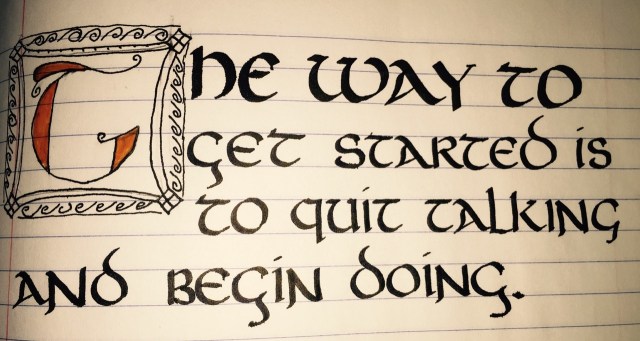 The way to
get started is
to quit talking
and begin doing.